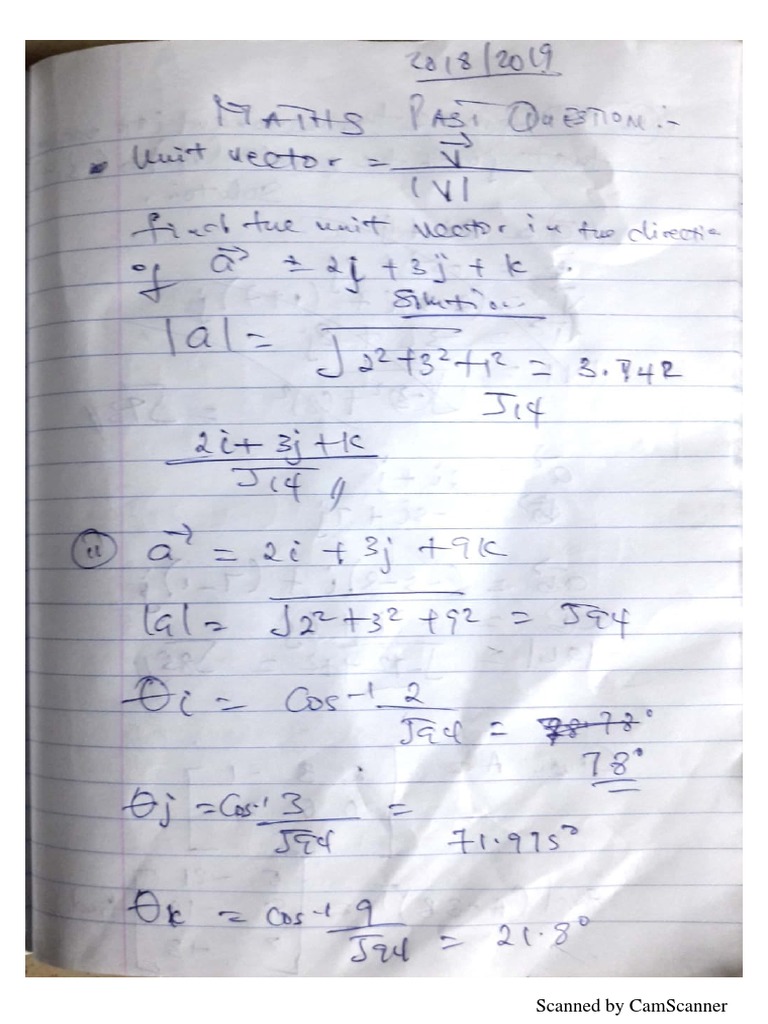 2018/2019
MATHS PAST QUESTION:-
Unit vector = V⃗ / |V|
find the unit vector in the directio
of a⃗ = 2j + 3j + k.
Solution
|a| = √2² + 3² + 1² = 3.742
√14
2i + 3j + k / √14
(ii) a⃗ = 2i + 3j + 9k
|a| = √2² + 3² + 9² = √94
θi = Cos⁻¹ 2/√94 = 78.78°
78°
θj = Cos⁻¹ 3/√94 =
71.975°
θk = Cos⁻¹ 9/√94 = 21.8°
Scanned by CamScanner